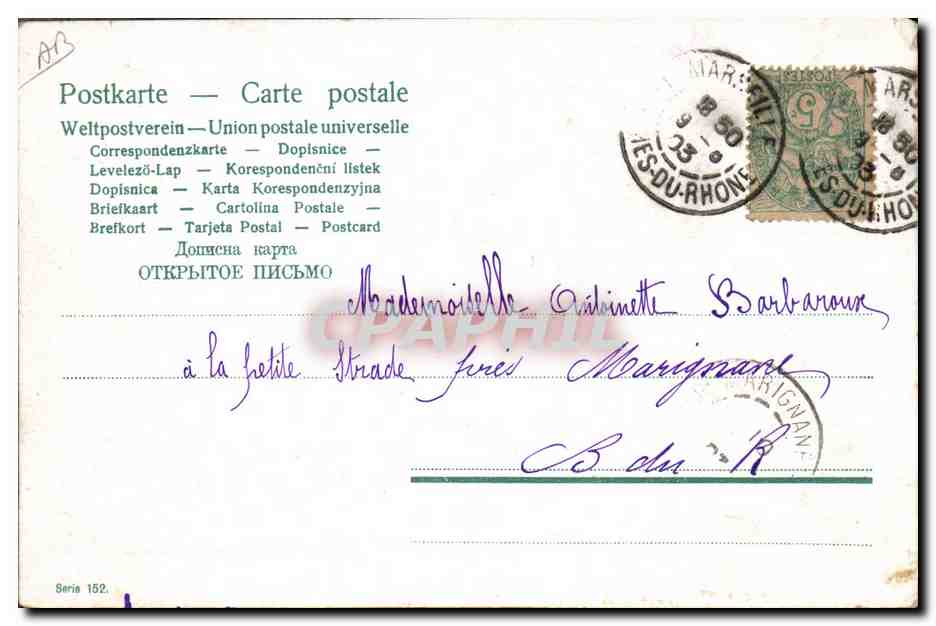 AB
Postkarte — Carte postale
Weltpostverein — Union postale universelle
Correspondenzkarte — Dopisnice —
Levelező-Lap — Korespondenční listek
Dopisnica — Karta Korespondenzyjna
Briefkaart — Cartolina Postale —
Brefkort — Tarjeta Postal — Postcard
Дописна карта
ОТКРЫТОЕ ПИСЬМО
MARSEILLE
18 50
9 - 8
03
HES-DU-RHONE
POSTES
5
MARS
18 50
9 - 8
03
ES-DU-RHON
Mademoiselle Antoinette Barbaroux
CPAPHIL
à la petite Strade près Marignane
MARIGNANE
B du R
Serie 152.